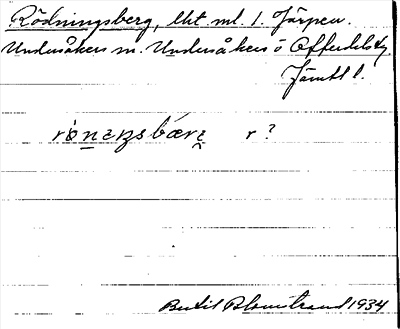 Rödningsberg, lkt ml. 1. Järpen.
Undersåkers m. Undersåkers o Offerdals tg
Jämtl l.
r ?
Bertil Blomstrand 1934